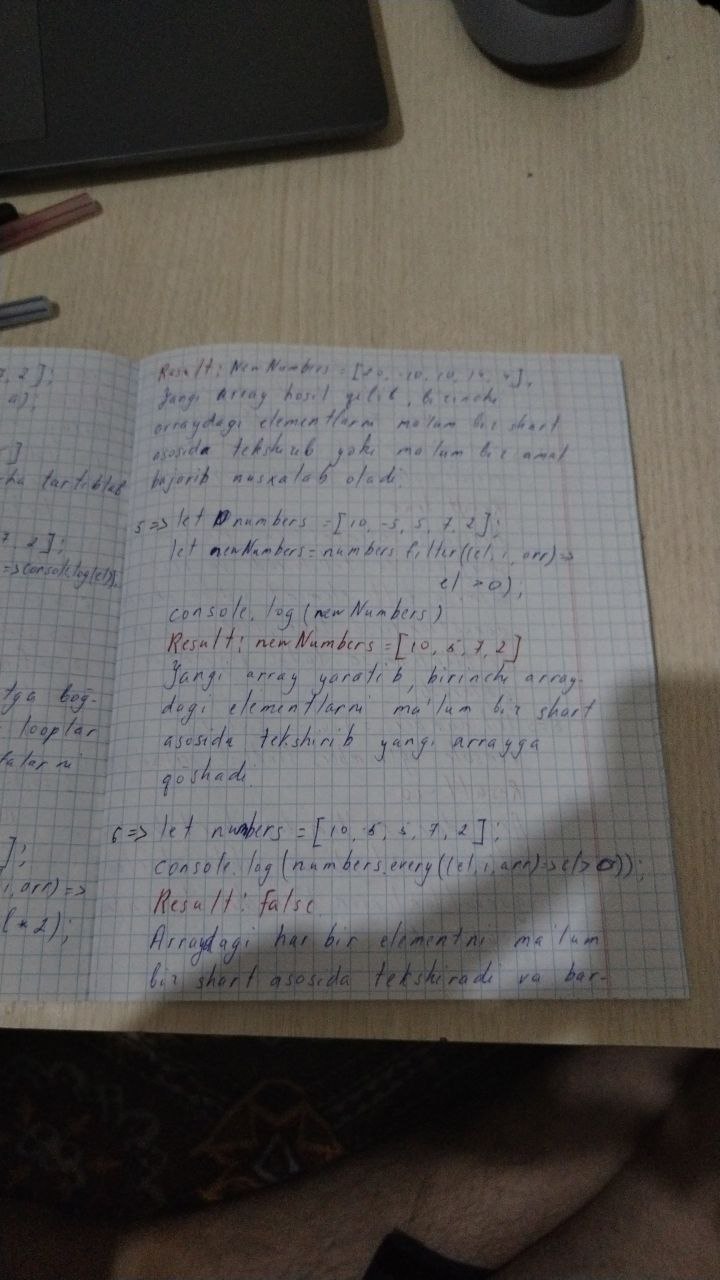 7, 2];
a);
r]
cha tartiblab
7, 2];
=>console.log(el));
tga bog-
looplar
falarni
];
i, arr) =>
l * 2);
Result: NewNumbers = [20, -10, 10, 14, 4],
Yangi array hosil qilib, birinchi
arraydagi elementlarni ma'lum bir shart
asosida tekshirib yoki ma'lum bir amal
bajarib nusxalab oladi.
5 => let numbers = [10, -5, 5, 7, 2];
let newNumbers = numbers.filter((el, i, arr) =>
el > 0);
console.log(newNumbers)
Result: newNumbers = [10, 5, 7, 2]
Yangi array yaratib, birinchi array-
dagi elementlarni ma'lum bir shart
asosida tekshirib yangi arrayga
qo'shadi.
6 => let numbers = [10, -5, 5, 7, 2];
console.log(numbers.every((el, i, arr) => el > 0));
Result: false
Arraydagi har bir elementni ma'lum
bir shart asosida tekshiradi va bar-